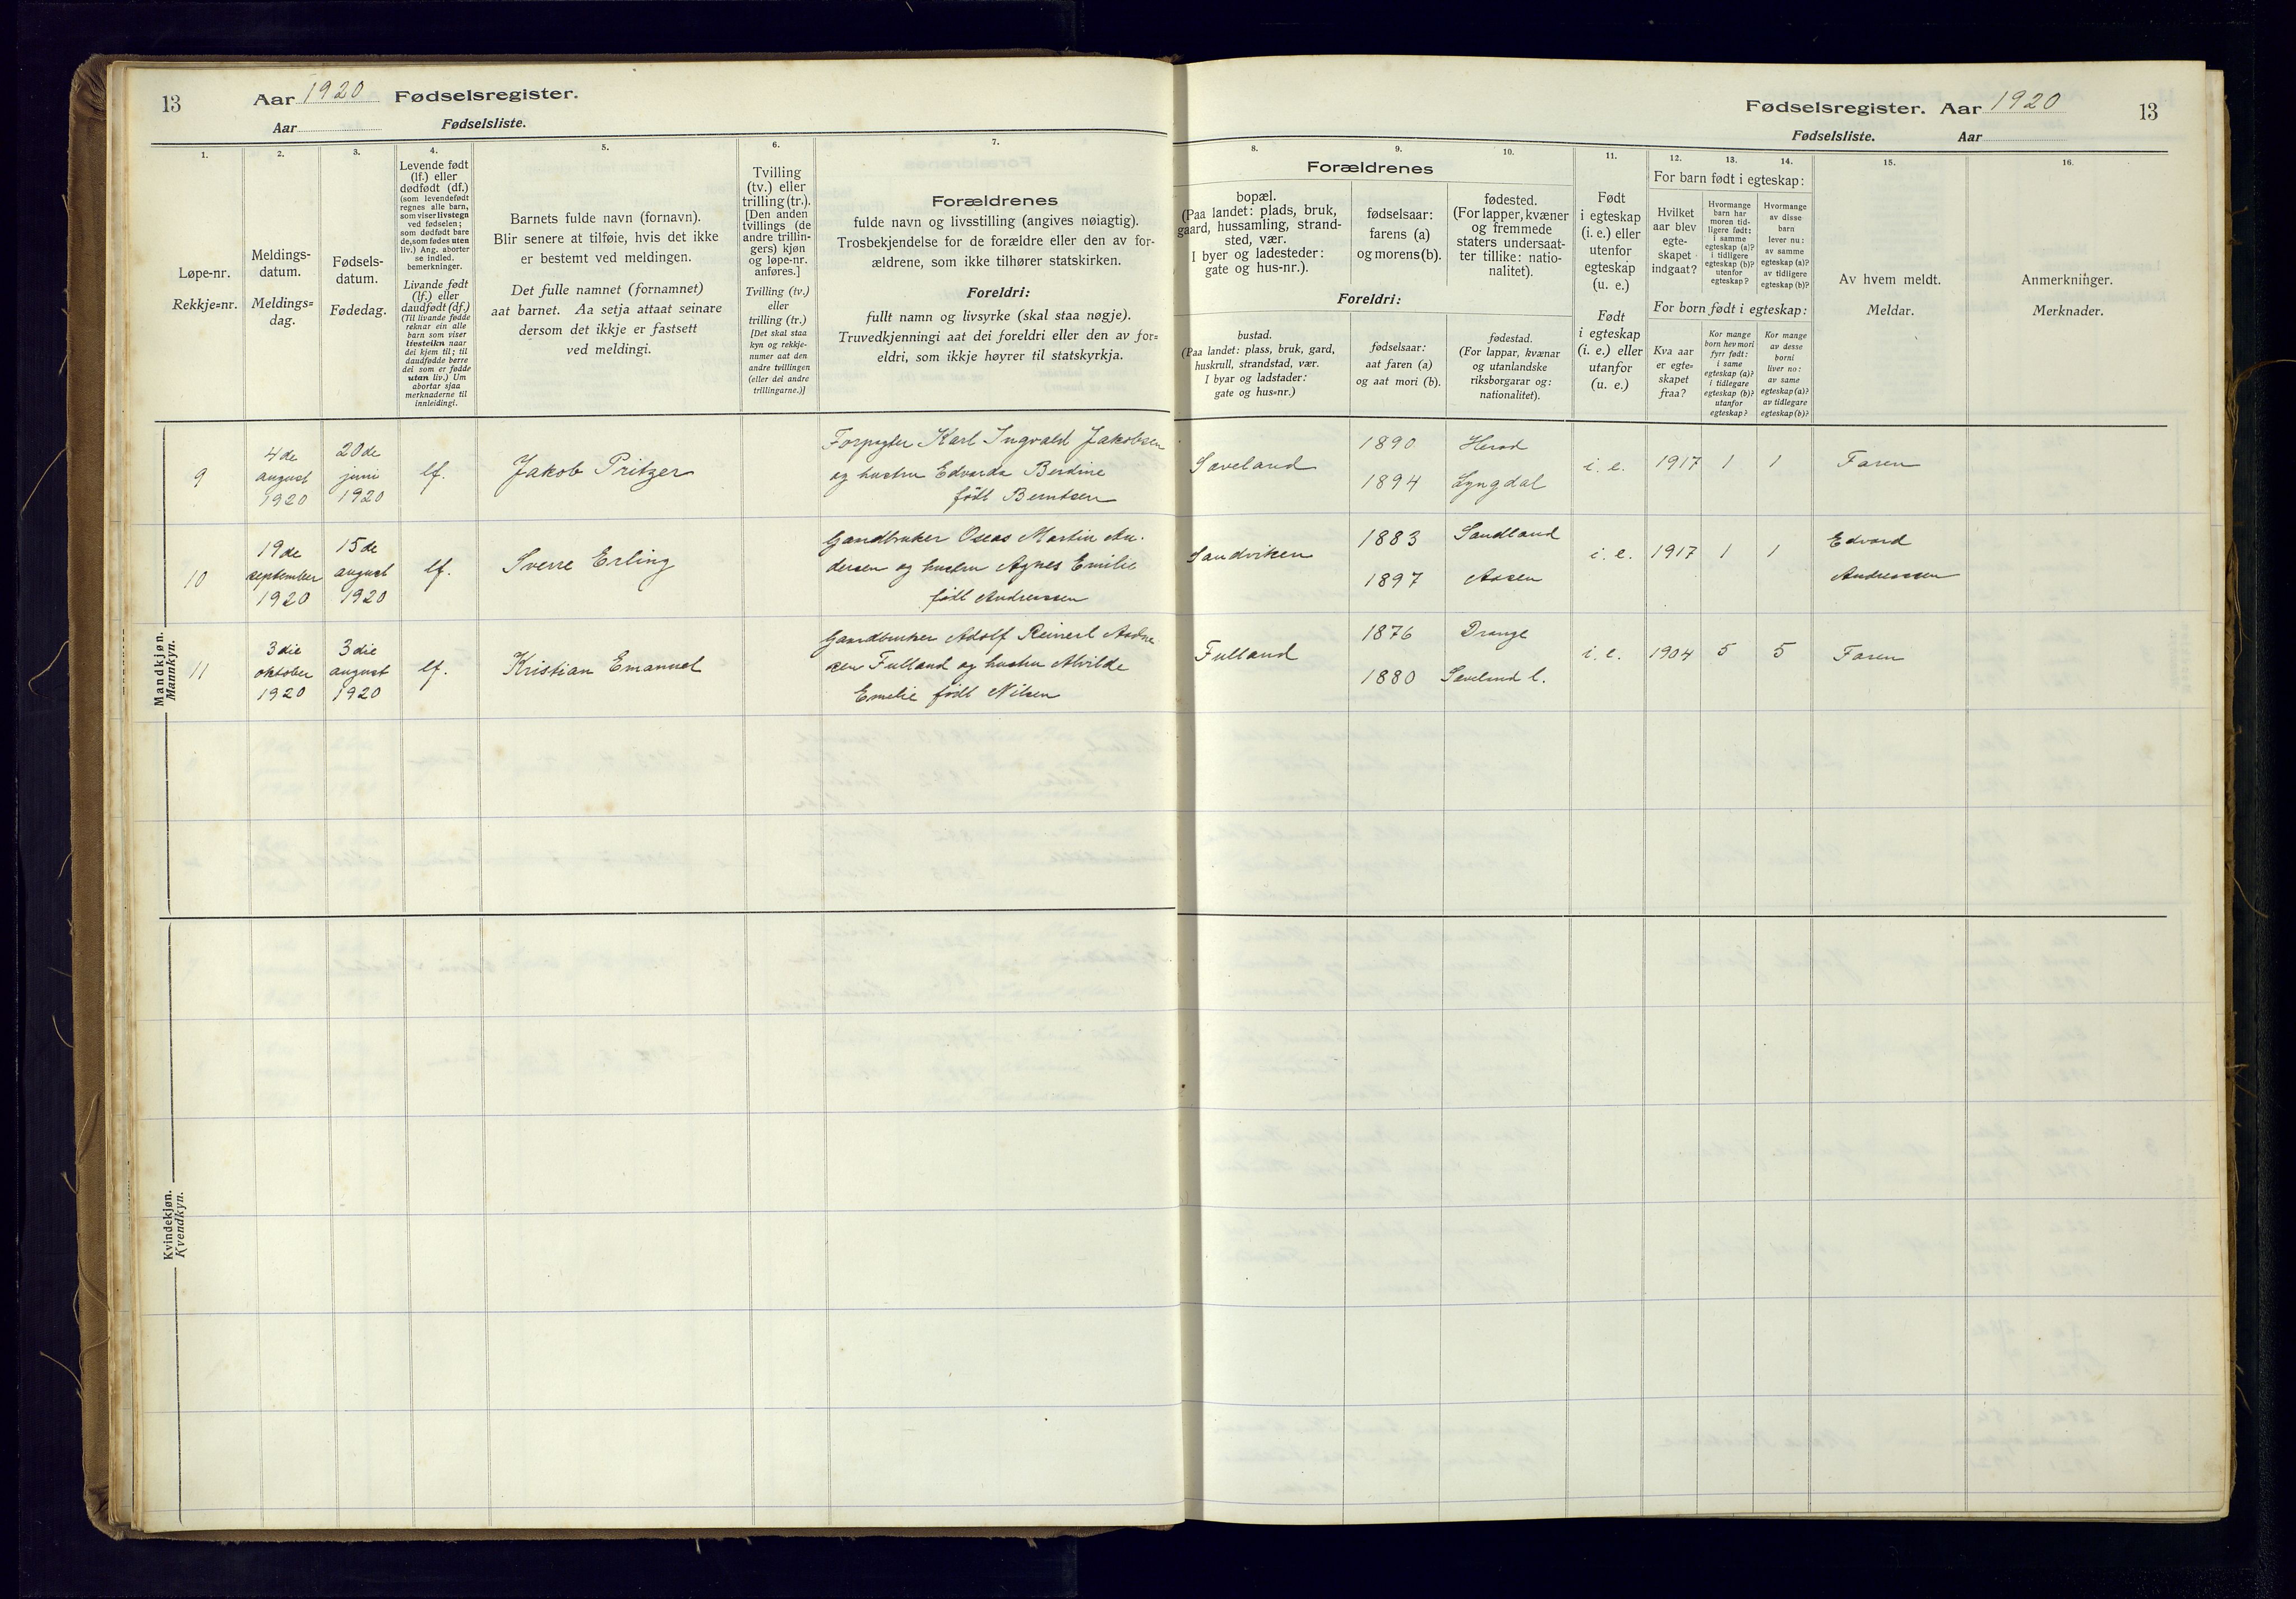 13
Aar 1920 Fødselsregister.
Aar Fødselsliste.
1.
Løpe-nr.
Rekkje=nr.
2.
Meldings-
datum.
Meldings=
dag.
3.
Fødsels-
datum.
Fødedag.
4.
Levende født
(lf.) eller
dødfødt (df.)
(som levendefødt
regnes alle barn,
som viser livstegn
ved fødselen;
som dødfødt bare
de, som fødes uten
liv.) Ang. aborter
se indled.
bemerkninger.
Livande født
(lf.) eller
daudfødt (df.)
(Til livande fødde
reknar ein alle
barn som viser
livsteikn naar
dei kjem til; til
daudfødde berre
dei som er fødde
utan liv.) Um
abortar sjaa
merknaderne til
innleidingi.
5.
Barnets fulde navn (fornavn).
Blir senere at tilføie, hvis det ikke
er bestemt ved meldingen.
Det fulle namnet (fornamnet)
aat barnet. Aa setja attaat seinare
dersom det ikkje er fastsett
ved meldingi.
6.
Tvilling
(tv.) eller
trilling (tr.).
[Den anden
tvillings (de
andre trillin-
gers) kjøn
og løpe-nr.
anføres.]
Tvilling (tv.)
eller
trilling (tr.)
[Det skal staa
kyn og rekkje-
numer aat den
andre tvillingen
(eller dei andre
trillingarne.)]
7.
Forældrenes
fulde navn og livsstilling (angives nøiagtig).
Trosbekjendelse for de forældre eller den av for-
ældrene, som ikke tilhører statskirken.
Foreldri:
fullt namn og livsyrke (skal staa nøgje).
Truvedkjenningi aat dei foreldri eller den av for=
eldri, som ikkje høyrer til statskyrkja.
Mandkjøn.
Mannkyn.
9
4de
august
1920
20de
juni
1920
lf.
Jakob Pritzer
Forpagter Karl Ingvald Jakobsen
og hustru Edvarda Berdine
født Berntsen
10
19de
september
1920
15de
august
1920
lf.
Sverre Erling
Gaardbruker Oseas Martin An-
dersen og hustru Agnes Emilie
født Andreassen
11
3die
oktober
1920
3die
august
1920
lf.
Kristian Emanuel
Gaardbruker Adolf Reinert Aadne-
sen Fulland og hustru Alvilde
Emelie født Nilsen
Kvindekjøn.
Kvendkyn.
Fødselsregister. Aar 1920
13
Fødselsliste. Aar
8.
9.
10.
Forældrenes
bopæl.
(Paa landet: plads, bruk,
gaard, hussamling, strand-
sted, vær.
I byer og ladesteder:
gate og hus-nr.).
fødselsaar:
farens (a)
og morens (b).
fødested.
(For lapper, kvæner
og fremmede
staters undersaat-
ter tillike: natio-
nalitet).
Foreldri:
bustad.
(Paa landet: plass, bruk, gard,
huskrull, strandstad, vær.
I byar og ladstader:
gate og hus=nr.)
fødselsaar:
aat faren (a)
og aat mori (b).
fødestad.
(For lappar, kvænar
og utanlandske
riksborgarar og:
nationalitet).
11.
Født
i egteskap
(i. e.) eller
utenfor
egteskap
(u. e.)
Født
i egteskap
(i. e.) eller
utanfor
(u. e.)
12.
13.
14.
For barn født i egteskap:
Hvilket
aar blev
egte-
skapet
indgaat?
Hvormange
barn har
moren tid-
ligere født:
i samme
egteskap (a)?
i tidligere
egteskap (b)?
utenfor
egteskap?
Hvormange
av disse
barn
lever nu:
av samme
egteskap (a)?
av tidligere
egteskap (b)?
For born født i egteskap:
Kva aar
er egte=
skapet
fraa?
Kor mange
born hev mori
fyrr født:
i same
egteskap (a)?
i tidlegare
egteskap (b)?
utanfor
egteskap?
Kor mange
av desse
borni
liver no:
av same
egteskap (a)?
av tidlegare
egteskap (b)?
15.
Av hvem meldt.
Meldar.
16.
Anmerkninger.
Merknader.
Saveland
1890
1894
Herad
Lyngdal
i. e.
1917
1
1
Faren
Sandviken
1883
1897
Sandland
Aasen
i. e.
1917
1
1
Edvard
Andreassen
Fulland
1876
1880
Drange
Saveland l.
i. e.
1904
5
5
Faren